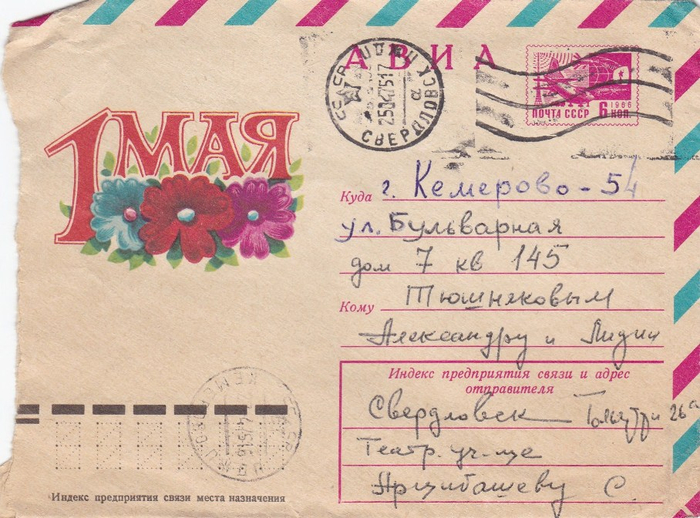 АВИА
СССР
СВЕРДЛОВСК
1966
ПОЧТА СССР 6 КОП.
1 МАЯ
Куда г. Кемерово-54
ул. Бульварная
дом 7 кв 145
Кому Тюшняковым
Александру и Лидии
Индекс предприятия связи и адрес
отправителя
Свердловск 26а
Театр. уч-ще
Арцибашеву С.
Индекс предприятия связи места назначения